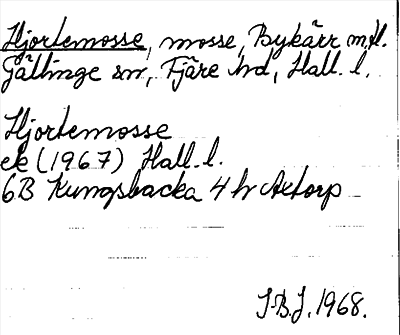 Hjortemosse, mosse, Bykärr m.fl.
Gällinge sn, Fjäre hd, Hall. l.
Hjortemosse
ek (1967) Hall. l.
6B Kungsbacka 4 h Axtorp
J.B.J. 1968.